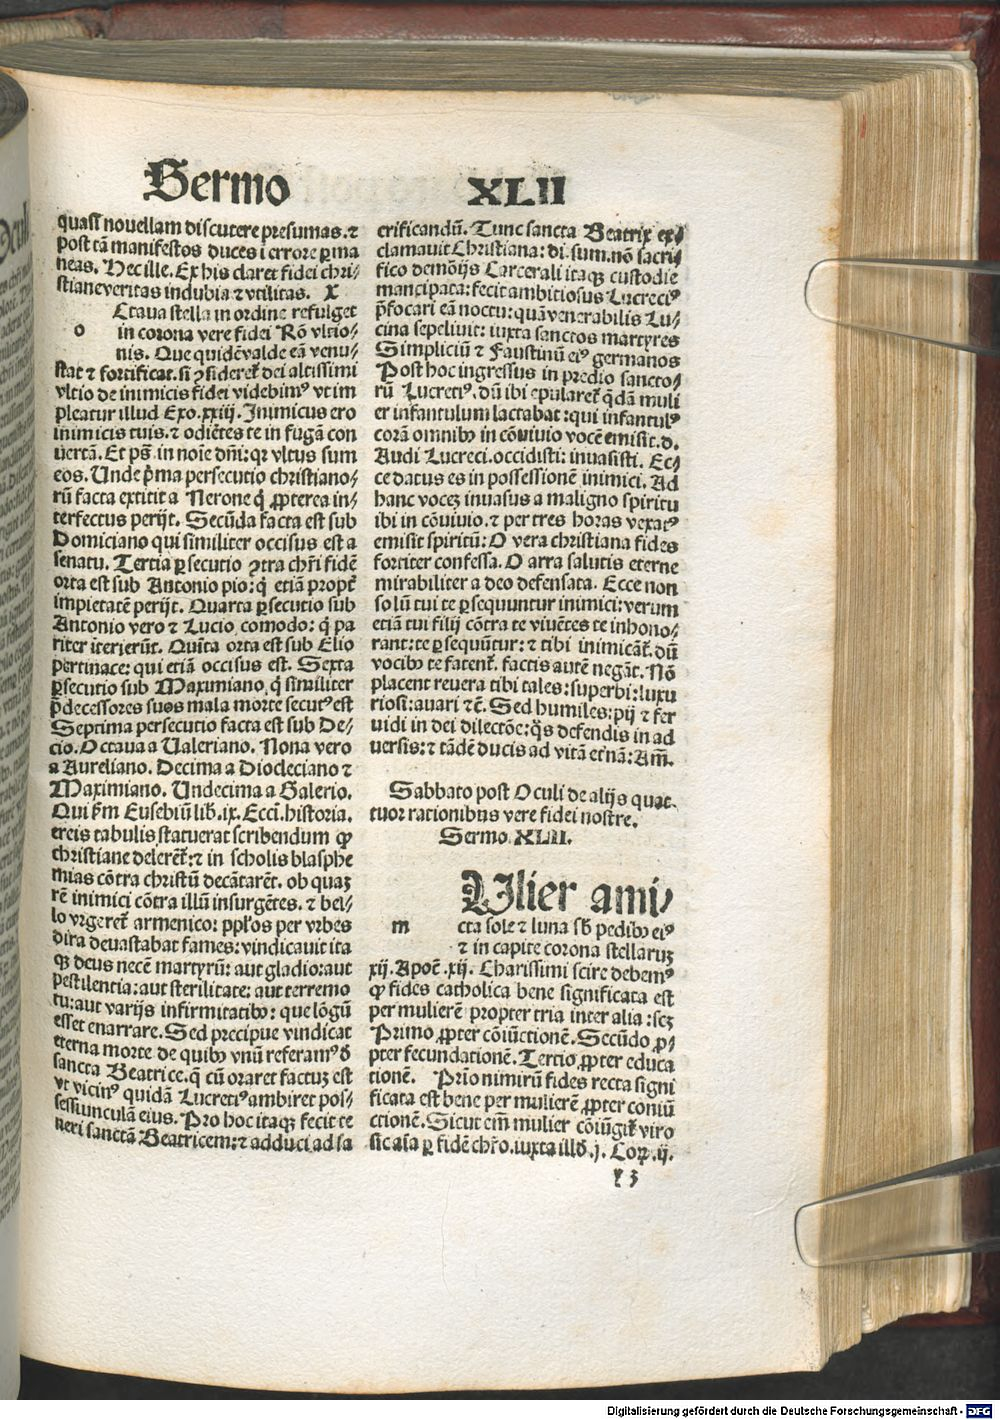 Sermo XLII
quasi nouellam discutere presumas. ⁊
post tā manifestos duces i errore ꝑma
neas. Hec ille. Ex his claret fidei chri⸗
stiane veritas indubia ⁊ vtilitas. X
Ctaua stella in ordine refulget
o in corona vere fidei Rō vltio⸗
nis. Que quidē valde eā venu⸗
stat ⁊ fortificat. si ꝯsideret᷑ dei altissimi
vltio de inimicis fidei videbimꝰ vt im
pleatur illud Exo. xxiij. Inimicus ero
inimicis tuis. ⁊ odiētes te in fugā con
uertā. Et ps̄. in noīe dn̄i: qꝛ vltus sum
eos. Unde p̄ma persecutio christiano⸗
rū facta extitit a Nerone q̇ ꝓpterea in⸗
terfectus perijt. Secūda facta est sub
Domiciano qui similiter occisus est a
senatu. Tertia ꝑsecutio ꝯtra chr̄i fidē
orta est sub Antonio pio: q̇ etiā propt̄
impietatē perijt. Quarta ꝑsecutio sub
Antonio vero ⁊ Lucio comodo: q̇ pa
riter iterierūt. Quīta orta est sub Elio
pertinace: qui etiā occisus est. Sexta
ꝑsecutio sub Maximiano q̇ similiter
p̄decessores suos mala morte secutꝰ est
Septima persecutio facta est sub De⸗
cio. Octaua a Ualeriano. Nona vero
a Aureliano. Decima a Diocleciano ⁊
Maximiano. Undecima a Galerio.
Qui ẜm Eusebiū lib. ix. Ecci. historia.
ereis tabulis statuerat scribendum ꝙ
christiane deleret᷑: ⁊ in scholis blasphe
mias cōtra christū decātarēt. ob quaꝫ
rē inimici cōtra illū insurgētes. ⁊ bel⸗
lo vrgeret᷑ armenico: ppl̄os per vrbes
dira deuastabat fames: vindicauit ita
qꝫ deus necē martyrū: aut gladio: aut
pestilentia: aut sterilitate: aut terremo
tu: aut varijs infirmitatibꝫ: que lōgū
esset enarrare. Sed precipue vindicat
eterna morte de quibꝫ vnū referamꝰ đ
sancta Beatrice. q̄ cū oraret factuꝫ est
vt vicinꝰ quidā Lucretiꝰ ambiret pos⸗
sessiunculā eius. Pro hoc itaqꝫ fecit te
neri sanctā Beatricem: ⁊ adduci ad sa
crificandū. Tunc sancta Beatrix ex⸗
clamauit Christiana: di. sum. nō sacri⸗
fico demōijs Carcerali itaqꝫ custodie
mancipata: fecit ambitiosus Lucreciꝰ
p̄focari eā noctu: quā venerabilis Lu⸗
cina sepeliuit: iuxta sanctos martyres
Simpliciū ⁊ Faustinū eiꝰ germanos
Post hoc ingressus in predio sancto⸗
rū Lucretiꝰ. dū ibi epularet᷑ q̄dā muli
er infantulum lactabat: qui infantulꝰ
corā omnibꝫ in cōuiuio vocē emisit. d.
Audi Lucreci. occidisti: inuasisti. Ec⸗
ce datus es in possessionē inimici. Ad
hanc voceꝫ inuasus a maligno spiritu
ibi in cōuiuio. ⁊ per tres horas vexatꝰ
emisit spiritū: O vera christiana fides
fortiter confessa. O arra salutis eterne
mirabiliter a deo defensata. Ecce non
solū tui te ꝑsequuntur inimici: verum
etiā tui filij cōtra te viuētes te inhono⸗
rant: te ꝑsequūtur: ⁊ tibi inimicāt᷑. dū
vocibꝫ te fatent᷑. factis autē negāt. Nō
placent reuera tibi tales: superbi: luxu
riosi: auari ⁊c̄. Sed humiles: pij ⁊ fer
uidi in dei dilectōe: q̄s defendis in ad
uersis: ⁊ tādē ducis ad vitā etnā: Am̄.
Sabbato post Oculi de alijs quat⸗
tuor rationibus vere fidei nostre.
Sermo. XLII.
Ulier ami⸗
m cta sole ⁊ luna sb̄ pedibꝫ eiꝰ
⁊ in capite corona stellaruꝫ
xij. Apoc̄. xij. Charissimi scire debemꝰ
ꝙ fides catholica bene significata est
per mulierē propter tria inter alia: scꝫ
Primo ꝓpter cōiūctionē. Secūdo ꝓ⸗
pter fecundationē. Tertio ꝓpter educa
tionē. Prīo nimirū fides recta signi
ficata est bene per mulierē ꝓpter coniū
ctionē. Sicut em̄ mulier cōiūgit᷑ viro
sic aīa ꝑ fidē chr̄o. iuxta illđ. j. Coꝝ. ij.